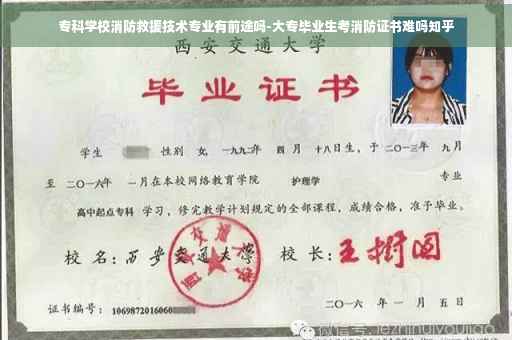 专科学校消防救援技术专业有前途吗-大专毕业生考消防证书难吗知乎
西安交通大学
毕业证书
学生 性别 女, 一九九二年 四月 十八日生, 于二〇一三年 九月
至 二〇一六年 一月在本校网络教育学院 护理学 专业
高中起点专科 学习, 修完教学计划规定的全部课程, 成绩合格, 准予毕业。
校名: 西安交通大学 校长: 王树国
西安交通大学
证书编号: 1069872016060
二〇一六年 一月 五日
微信号: jezhihuiyoujiao